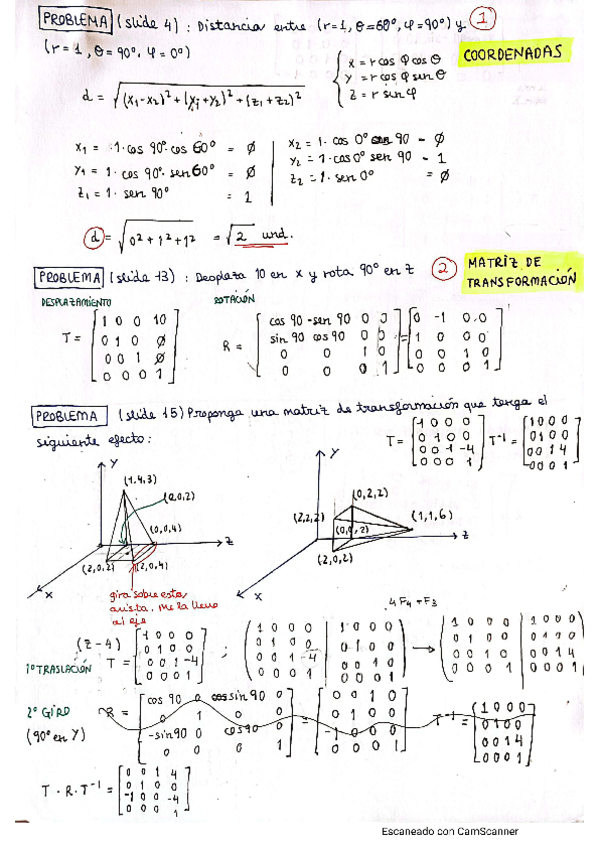 PROBLEMA (slide 4) : Distancia entre (r=1, θ=60º, φ=90º) y 1
(r=1, θ=90º, φ=0º)
COORDENADAS
d = √(x1-x2)²+(y1+y2)²+(z1+z2)²
x = r cos φ cos θ
y = r cos φ sen θ
z = r sin φ
x1 = 1·cos 90º·cos 60º = ∅
y1 = 1·cos 90º·sen 60º = ∅
z1 = 1· sen 90º = 1
x2 = 1· cos 0º sen 90 - ∅
y2 = 1·cos 0º sen 90 - 1
z2 = 1· sen 0º = ∅
d = √0²+1²+1² = √2 und.
PROBLEMA (slide 13) : Desplaza 10 en x y rota 90º en z 2
MATRIZ DE
TRANSFORMACIÓN
DESPLAZAMIENTO
ROTACIÓN
T =
1 0 0 10
0 1 0 ∅
0 0 1 ∅
0 0 0 1
R =
cos 90 -sen 90 0 0
sin 90 cos 90 0 0
0 0 1 0
0 0 0 1
=
0 -1 0 0
1 0 0 0
0 0 1 0
0 0 0 1
PROBLEMA (slide 15) Proponga una matriz de transformación que tenga el
siguiente efecto:
T =
1 0 0 0
0 1 0 0
0 0 1 -4
0 0 0 1
T-1 =
1 0 0 0
0 1 0 0
0 0 1 4
0 0 0 1
Y
(1,4,3)
(0,0,2)
(0,0,4)
Z
(2,0,2)
(2,0,4)
X
gira sobre esta
arista. Me la llevo
al eje
Y
(0,2,2)
(2,2,2)
(0,0,2)
(1,1,6)
Z
(2,0,2)
X
(z-4)
1º TRASLACIÓN
T =
1 0 0 0
0 1 0 0
0 0 1 -4
0 0 0 1
;
1 0 0 0 | 1 0 0 0
0 1 0 0 | 0 1 0 0
0 0 1 -4 | 0 0 1 0
0 0 0 1 | 0 0 0 1
4F4+F3
→
1 0 0 0 | 1 0 0 0
0 1 0 0 | 0 1 0 0
0 0 1 0 | 0 0 1 4
0 0 0 1 | 0 0 0 1
2º GIRO
(90º en Y)
R =
cos 90 0 sin 90 0
0 1 0 0
-sin 90 0 cos 90 0
0 0 0 1
=
0 0 1 0
0 1 0 0
-1 0 0 0
0 0 0 1
T-1 =
1 0 0 0
0 1 0 0
0 0 1 4
0 0 0 1
T · R · T-1 =
0 0 1 4
0 1 0 0
-1 0 0 -4
0 0 0 1
Escaneado con CamScanner